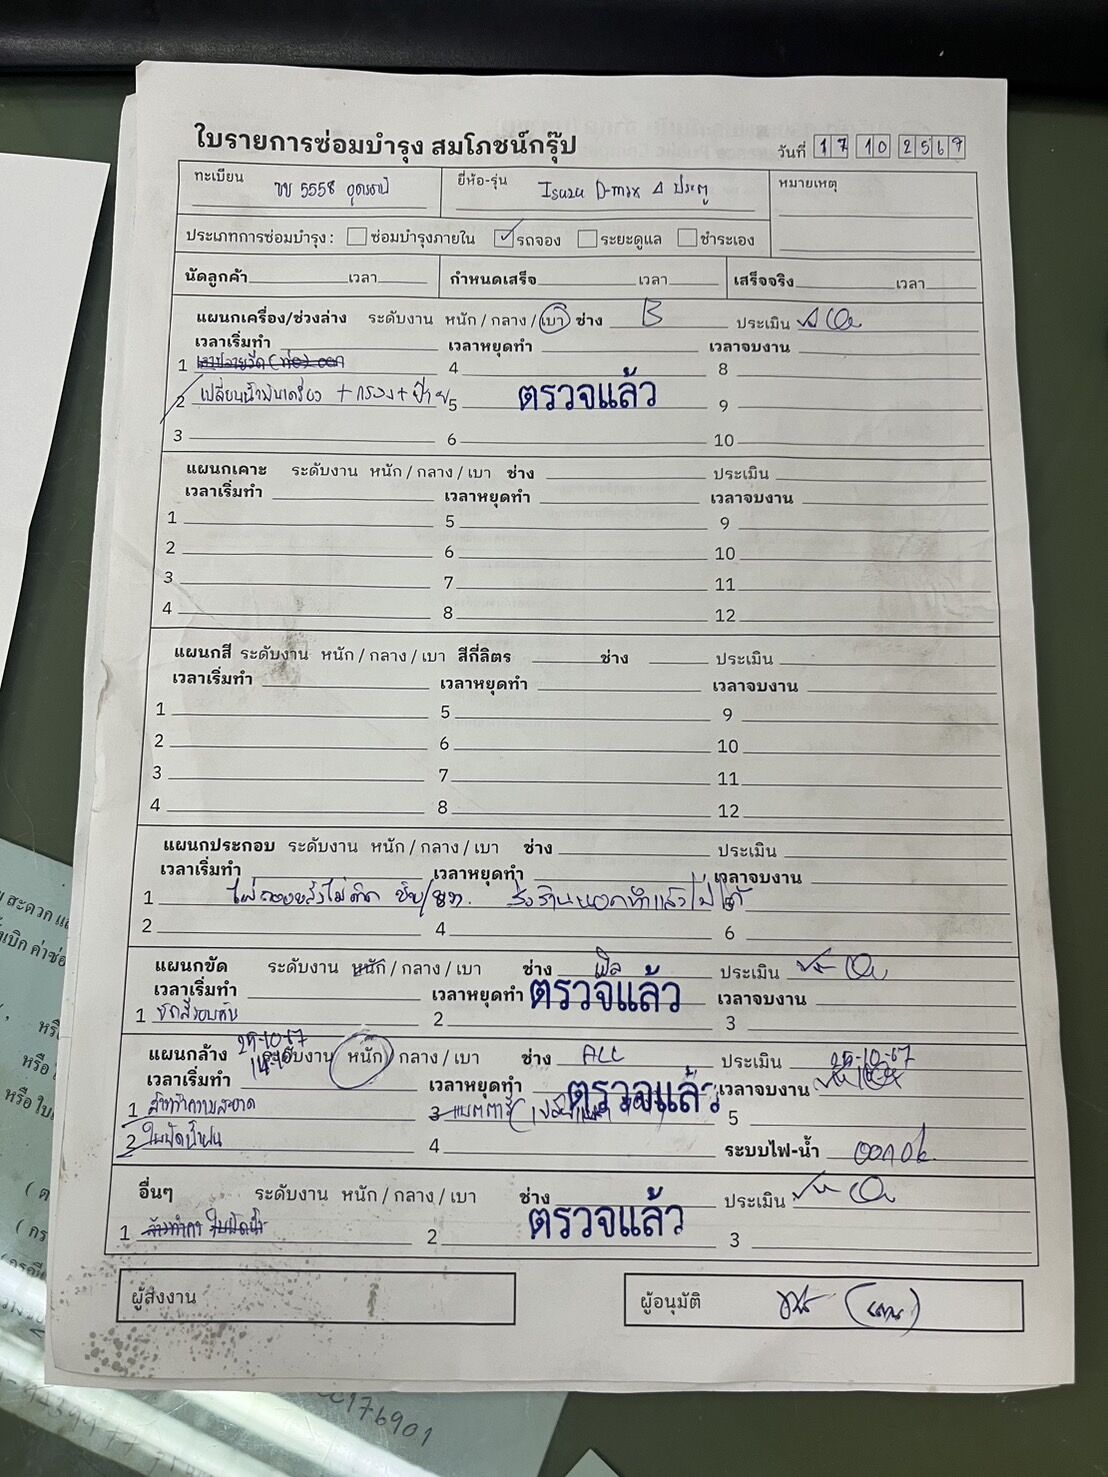 ใบรายการซ่อมบำรุง สมโภชน์กรุ๊ป วันที่ 17 10 2567
ทะเบียน 5558 อุดรธานี ยี่ห้อ-รุ่น Isuzu D-max 4 ประตู หมายเหตุ
ประเภทการซ่อมบำรุง : ซ่อมบำรุงภายใน รถจอง ระยะดูแล ชำระเอง
นัดลูกค้า เวลา กำหนดเสร็จ เวลา เสร็จจริง เวลา
แผนกเครื่อง/ช่วงล่าง ระดับงาน หนัก / กลาง / เบา ช่าง B ประเมิน
เวลาเริ่มทำ เวลาหยุดทำ เวลาจบงาน
1 4 8
2 เปลี่ยนน้ำมันเครื่อง + กรอง + ป้าย 5 ตรวจแล้ว 9
3 6 10
แผนกเคาะ ระดับงาน หนัก / กลาง / เบา ช่าง ประเมิน
เวลาเริ่มทำ เวลาหยุดทำ เวลาจบงาน
1 5 9
2 6 10
3 7 11
4 8 12
แผนกสี ระดับงาน หนัก / กลาง / เบา สีกี่ลิตร ช่าง ประเมิน
เวลาเริ่มทำ เวลาหยุดทำ เวลาจบงาน
1 5 9
2 6 10
3 7 11
4 8 12
แผนกประกอบ ระดับงาน หนัก / กลาง / เบา ช่าง ประเมิน
เวลาเริ่มทำ เวลาหยุดทำ เวลาจบงาน
1 ไฟถอยหลังไม่ติด ส่งร้านนอกทำแล้วไม่ได้
2 4 6
แผนกขัด ระดับงาน หนัก / กลาง / เบา ช่าง ประเมิน
เวลาเริ่มทำ เวลาหยุดทำ ตรวจแล้ว เวลาจบงาน
1 ขัดสีรอบคัน 2 3
แผนกล้าง ระดับงาน หนัก / กลาง / เบา ช่าง ALL ประเมิน 29-10-67
เวลาเริ่มทำ เวลาหยุดทำ ตรวจแล้ว เวลาจบงาน
1 ล้างทำความสะอาด 3 แบตตารี่ 5
2 ใบปัดน้ำฝน 4 ระบบไฟ-น้ำ ok
อื่นๆ ระดับงาน หนัก / กลาง / เบา ช่าง ประเมิน
1 ใบปัดน้ำ 2 ตรวจแล้ว 3
ผู้ส่งงาน ผู้อนุมัติ
176901